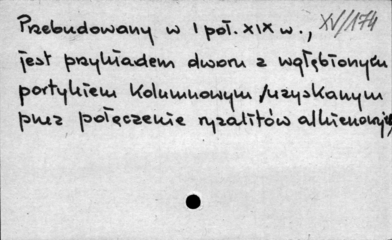 Przebudowany w I poł. XIX w., XV/174
jest przykładem dworu z wgłębionym
portykiem kolumnowym /uzyskanym
przez połączenie ryzalitów alkierzowych/